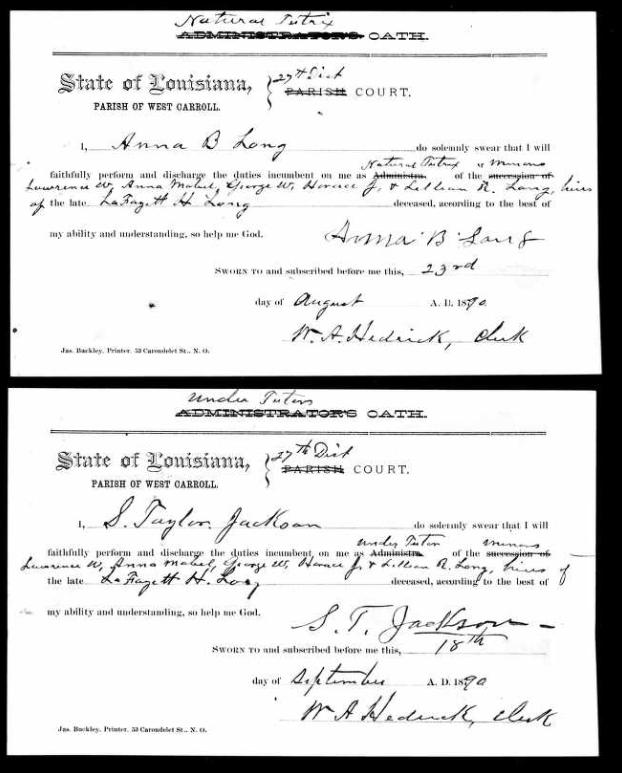 Natural Tutrix
ADMINISTRATOR'S OATH.
State of Louisiana,
PARISH OF WEST CARROLL.
27th Dist
PARISH COURT.
I, Anna B Long do solemnly swear that I will
Natural Tutrix minors
faithfully perform and discharge the duties incumbent on me as Administra. of the succession of
Lawrence W, Anna Mabel, George W, Horace J, & Lillian R. Long, hires
of the late LaFayett H Long deceased, according to the best of
my ability and understanding, so help me God.
Anna B Long
SWORN TO and subscribed before me this, 23rd
day of August A. D. 1890
W. A. Hedrick, Clerk
Jas. Buckley, Printer, 53 Carondelet St., N. O.
Under Tutors
ADMINISTRATOR'S OATH.
State of Louisiana,
PARISH OF WEST CARROLL.
27th Dist
PARISH COURT.
I, S. Taylor Jackson do solemnly swear that I will
under Tutor minors
faithfully perform and discharge the duties incumbent on me as Administra. of the succession of
Lawrence W, Anna Mabel, George W, Horace J, & Lillian R. Long, hires of
the late LaFayett H. Long deceased, according to the best of
my ability and understanding, so help me God.
S. T. Jackson
SWORN TO and subscribed before me this, 18th
day of September A. D. 1890
W A Hedrick, Clerk
Jas. Buckley, Printer, 53 Carondelet St., N. O.